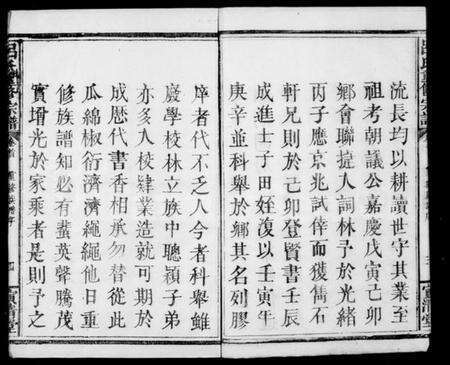 流長均以耕讀世守其業至
祖考朝議公嘉慶戊寅己卯
鄉會聯捷入詞林予於光緒
丙子應京兆試倖而獲儁石
軒兄則於己卯登賢書壬辰
成進士子姪湲以壬寅午
庚辛並科舉於鄉其名列膠
庠者代不乏人今者科舉雖
廢學校林立族中聰穎子弟
亦多人校肄業造就可期於
成歷代書香相承勿替從此
瓜綿椒衍濟濟繩繩他日重
修族譜知必有蜚英聲騰茂
實增光於家乘者是則予之